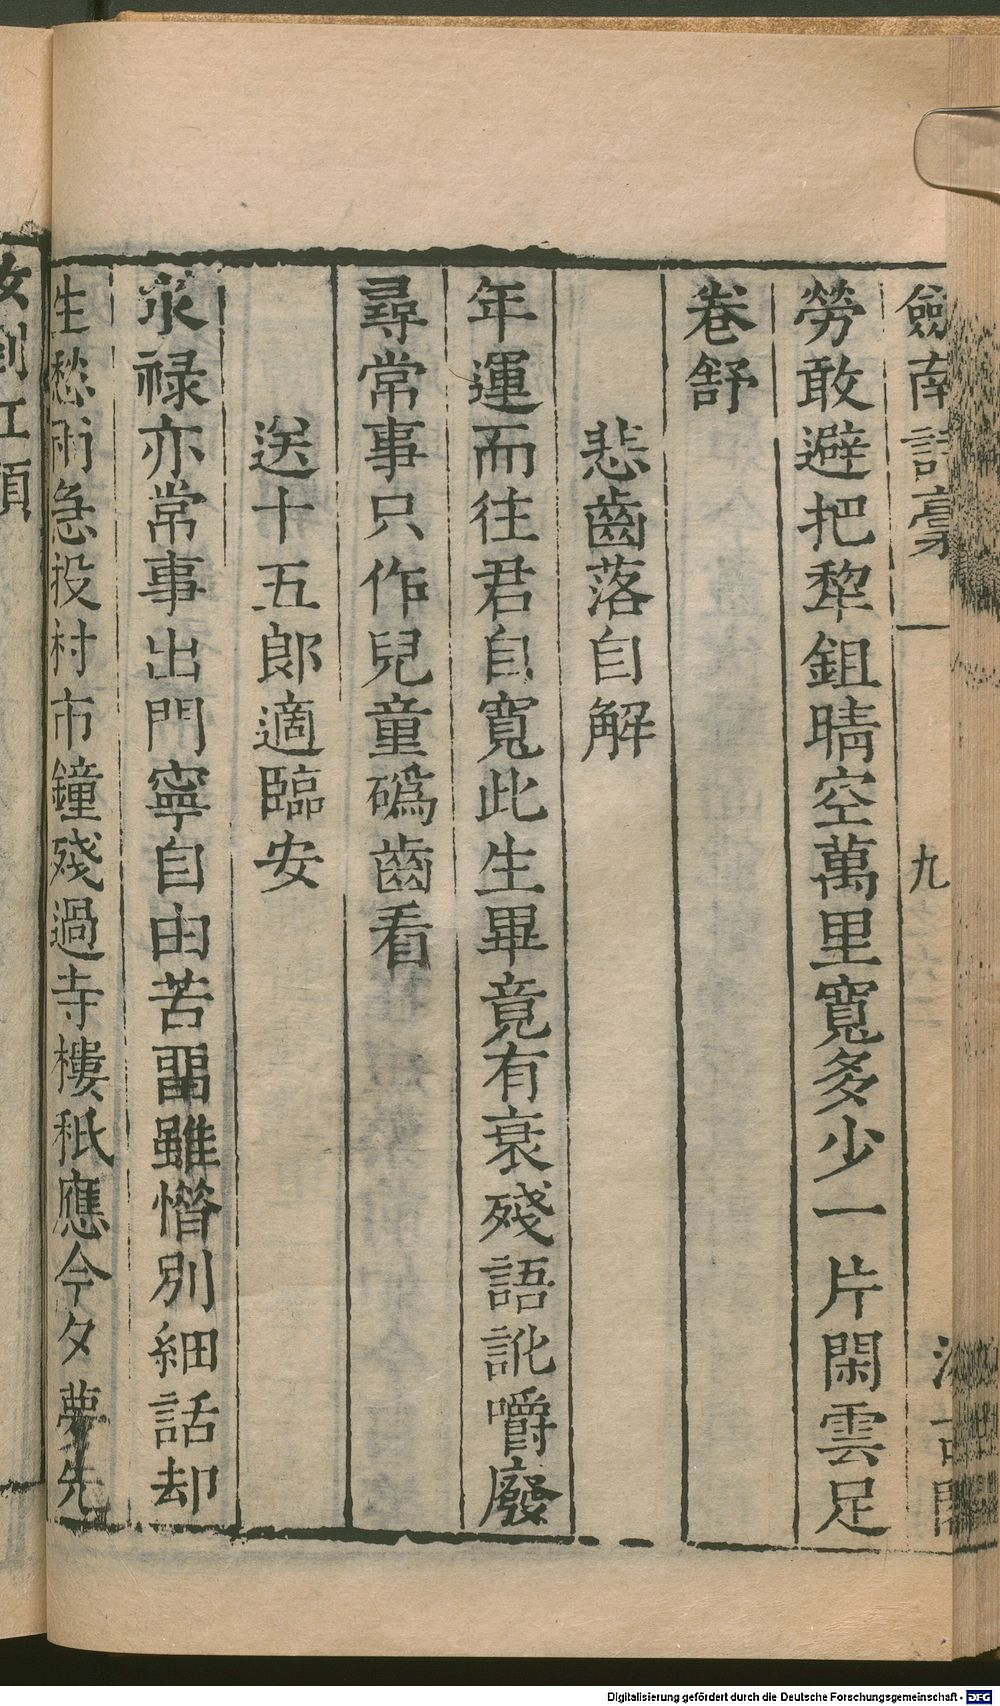 劒南詩稾 一 九 汲古閣
勞敢避把犂鉏晴空萬里寬多少一片閑雲足
卷舒
悲齒落自解
年運而往君自寬此生畢竟有衰殘語訛嚼廢
尋常事只作兒童磯齒看
送十五郎適臨安
求禄亦常事出門寧自由苦畱雖惜別細話却
生愁雨急投村市鐘殘過寺樓秖應今夕夢先
汝到江頭
Digitalisierung gefördert durch die Deutsche Forschungsgemeinschaft - DFG